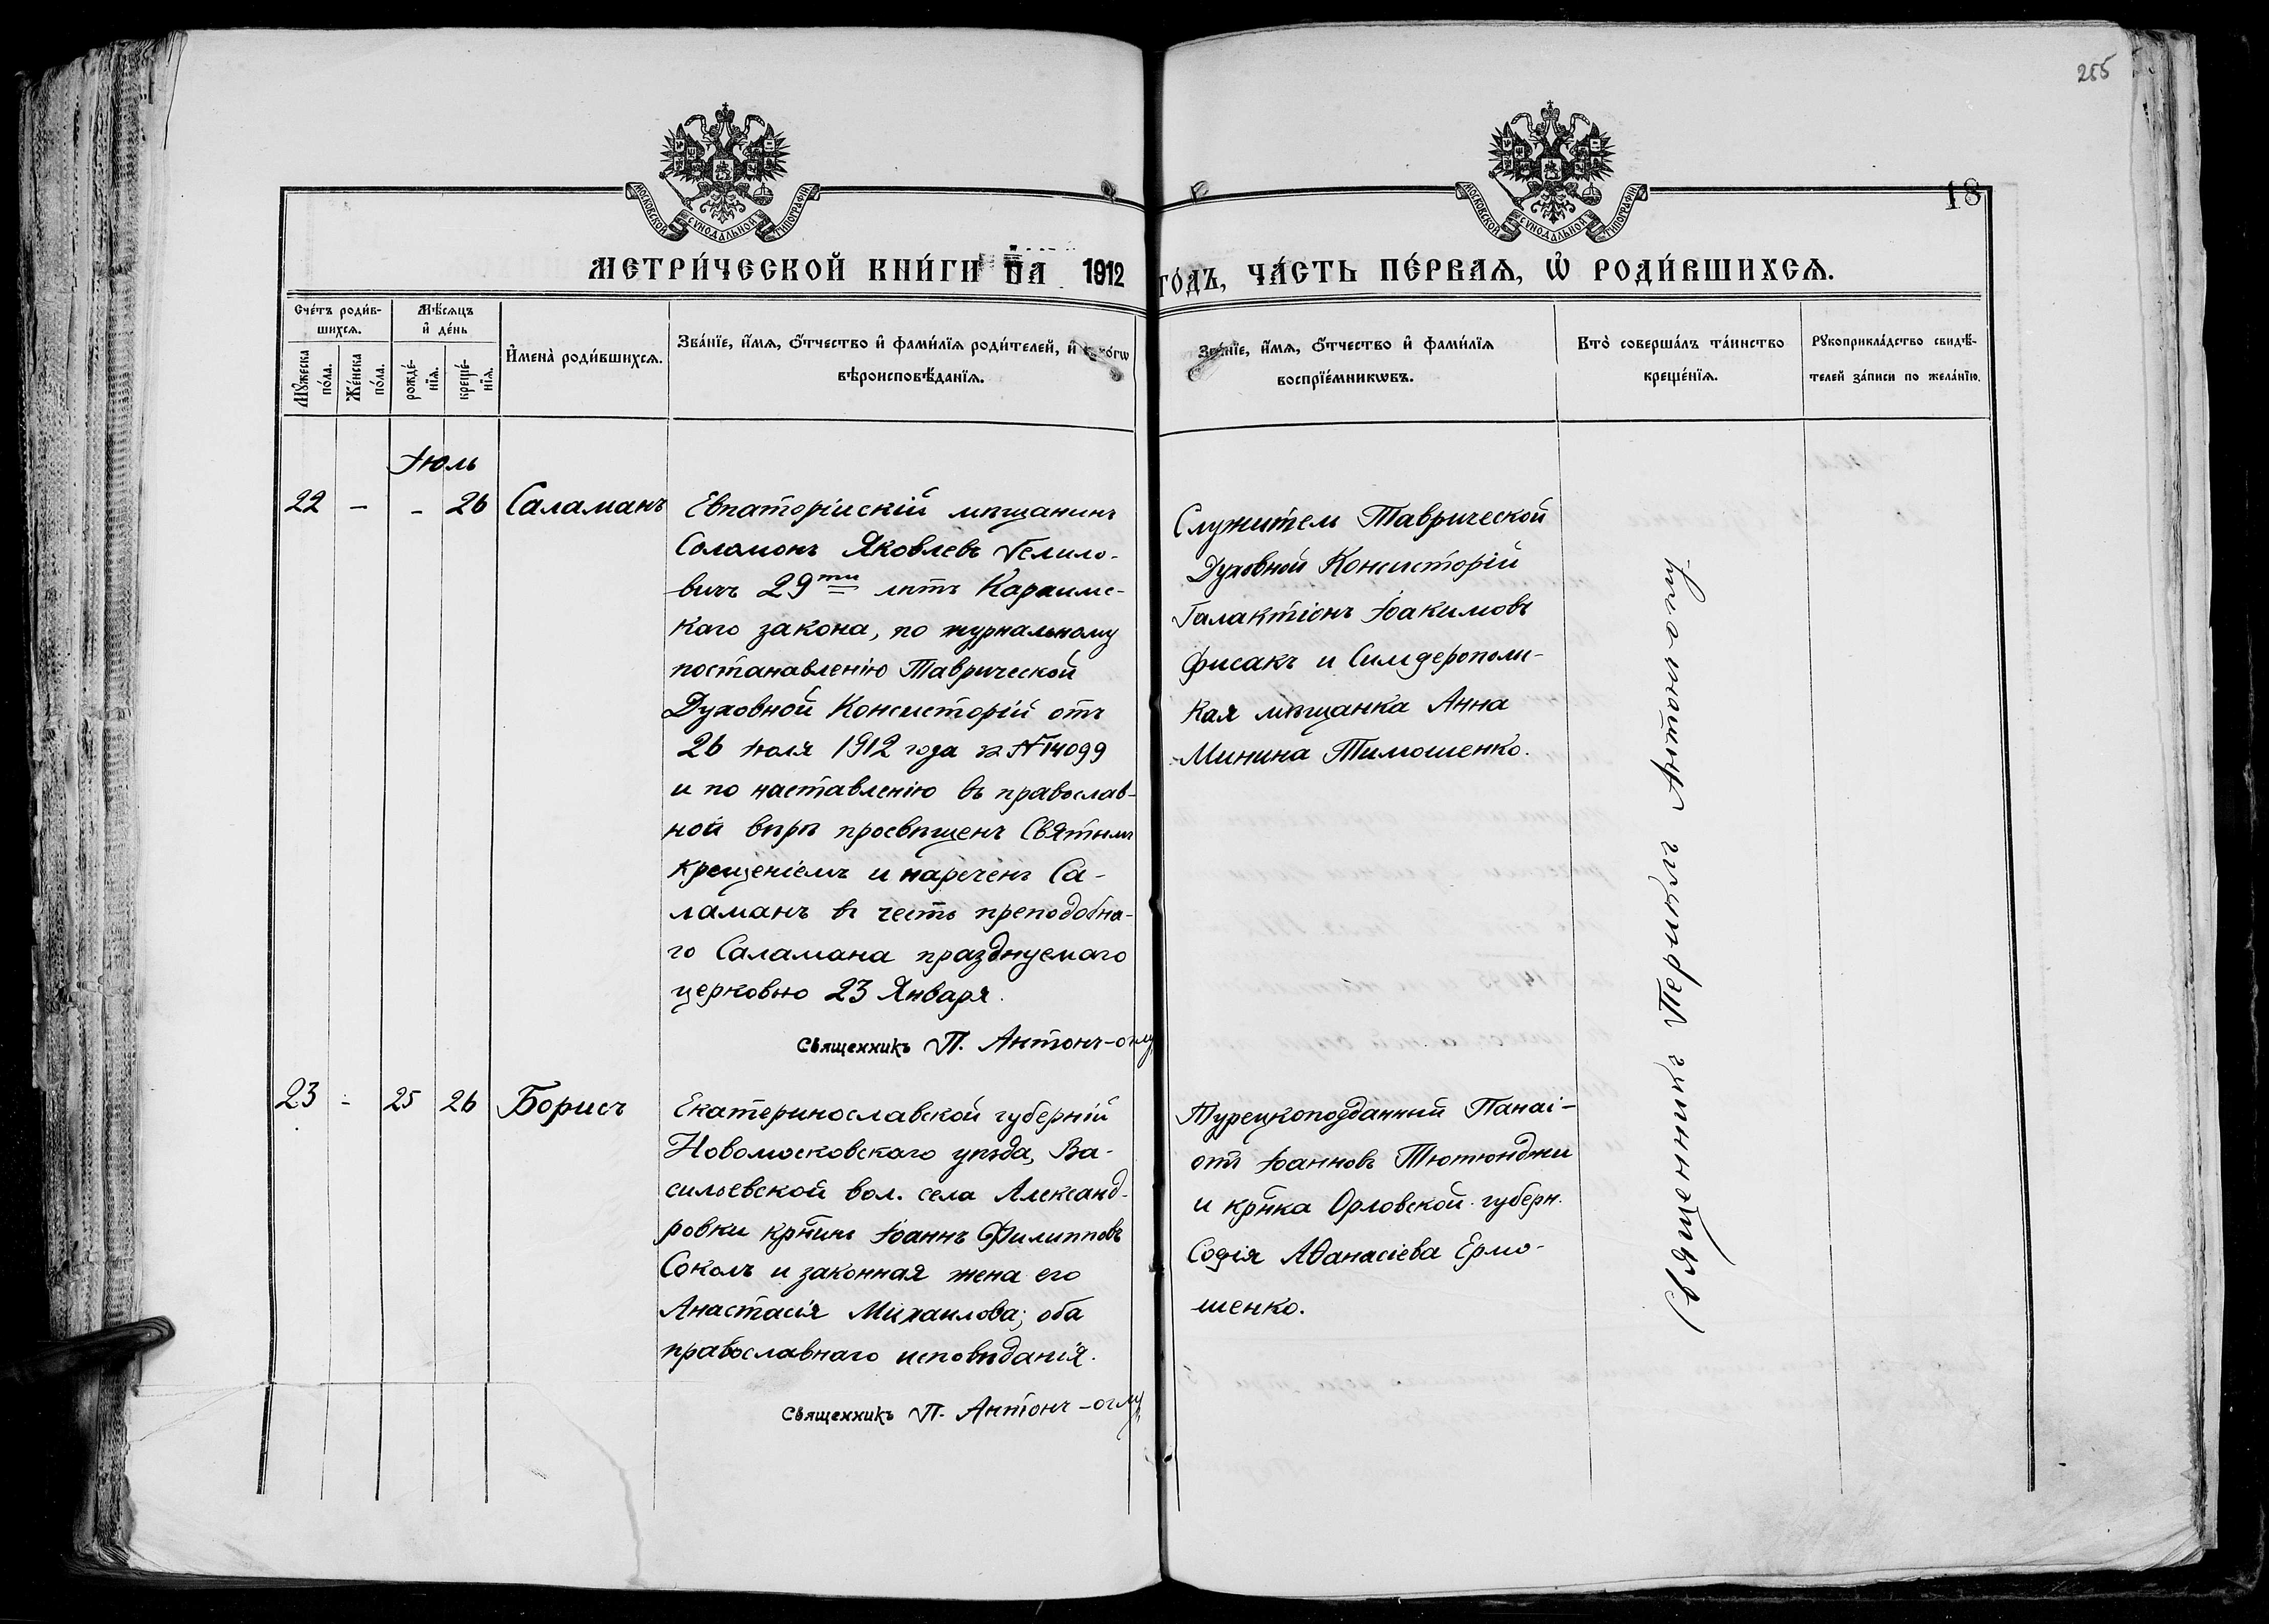 255
МОСКОВСКОЙ СѴНОДАЛЬНОЙ ТИПОГРАФІИ
МОСКОВСКОЙ СѴНОДАЛЬНОЙ ТИПОГРАФІИ
18
МЕТРИ́ЧЕСКОЙ КНИ́ГИ НА 1912 ГО́ДЪ, ЧА́СТЬ ПЕ́РВАѦ, Ѡ҆ РОДИ́ВШИХСѦ.
Сче́тъ роди́в-
шихсѧ.
Мꙋ́жеска
по́ла.
Же́нска
по́ла.
Мѣ́сѧцъ
и҆ де́нь
рожде́-
нїѧ.
креще́-
нїѧ.
И҆мена̀ роди́вшихсѧ.
Зва́нїе, и҆́мѧ, ѻ҆́тчество и҆ фами́лїѧ роди́телей, и҆ како́гѡ
вѣроисповѣ́данїѧ.
Зва́нїе, и҆́мѧ, ѻ҆́тчество и҆ фами́лїѧ
воспрїе́мникѡвъ.
Кто̀ соверша́лъ та́инство
креще́нїѧ.
Рꙋкоприкла́дство свидѣ́-
телей за́писи по жела́нїю.
Іюль
22 - - 26 Саламанъ
Евпаторійскій мѣщанинъ
Соломонъ Яковлевъ Гелило-
вичъ 29ти лѣтъ Караимс-
каго закона, по журнальному
постанавленію Таврической
Духовной Консисторій отъ
26 Іюля 1912 года за № 14099
и по наставленію въ православ-
ной вѣрѣ просвѣщенъ Святымъ
Крещеніемъ и нареченъ Са-
ламанъ въ честь преподобна-
го Саламана празднуемаго
церковью 23 Января.
Священникъ П. Антонъ-оглу
Служитель Таврической
Духовной Консисторій
Галактіонъ Іоакимовъ
Фисакъ и Симферополи-
кая мѣщанка Анна
Минина Тимошенко.
23 - 25 26 Борисъ
Екатеринославской губерній
Новомосковскаго уѣзда, Ва-
сильевской вол. села Александ-
ровки кр͠нинъ Іоаннъ Филипповъ
Соколъ и законная жена его
Анастасія Михаилова; оба
православнаго исповѣданія.
Священникъ П. Антонъ-оглу
Турецкоподданный Панаі-
отъ Іоанновъ Тютюнджи
и кр͠нка Орловской губерн.
Софія Аѳанасіева Ермо-
шенко.
Священникъ Периклъ Антоньоглу